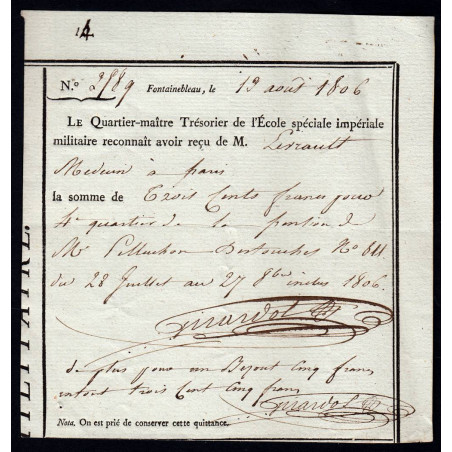 14
N.º 2589 Fontainebleau, le 13 août 1806
Le Quartier-maître Trésorier de l'École spéciale impériale
militaire reconnaît avoir reçu de M.
Medecin à paris
la somme de Trois Cents francs pour
4e quartier de la pension de
Mr Pelluchon Destouches No 611
du 28 Juillet au 27 8bre inclus 1806.
Girardot
de plus pour un Bijout Cinq francs
entout trois Cent Cinq francs
Girardot
Nota. On est prié de conserver cette quittance.
MILITAIRE.